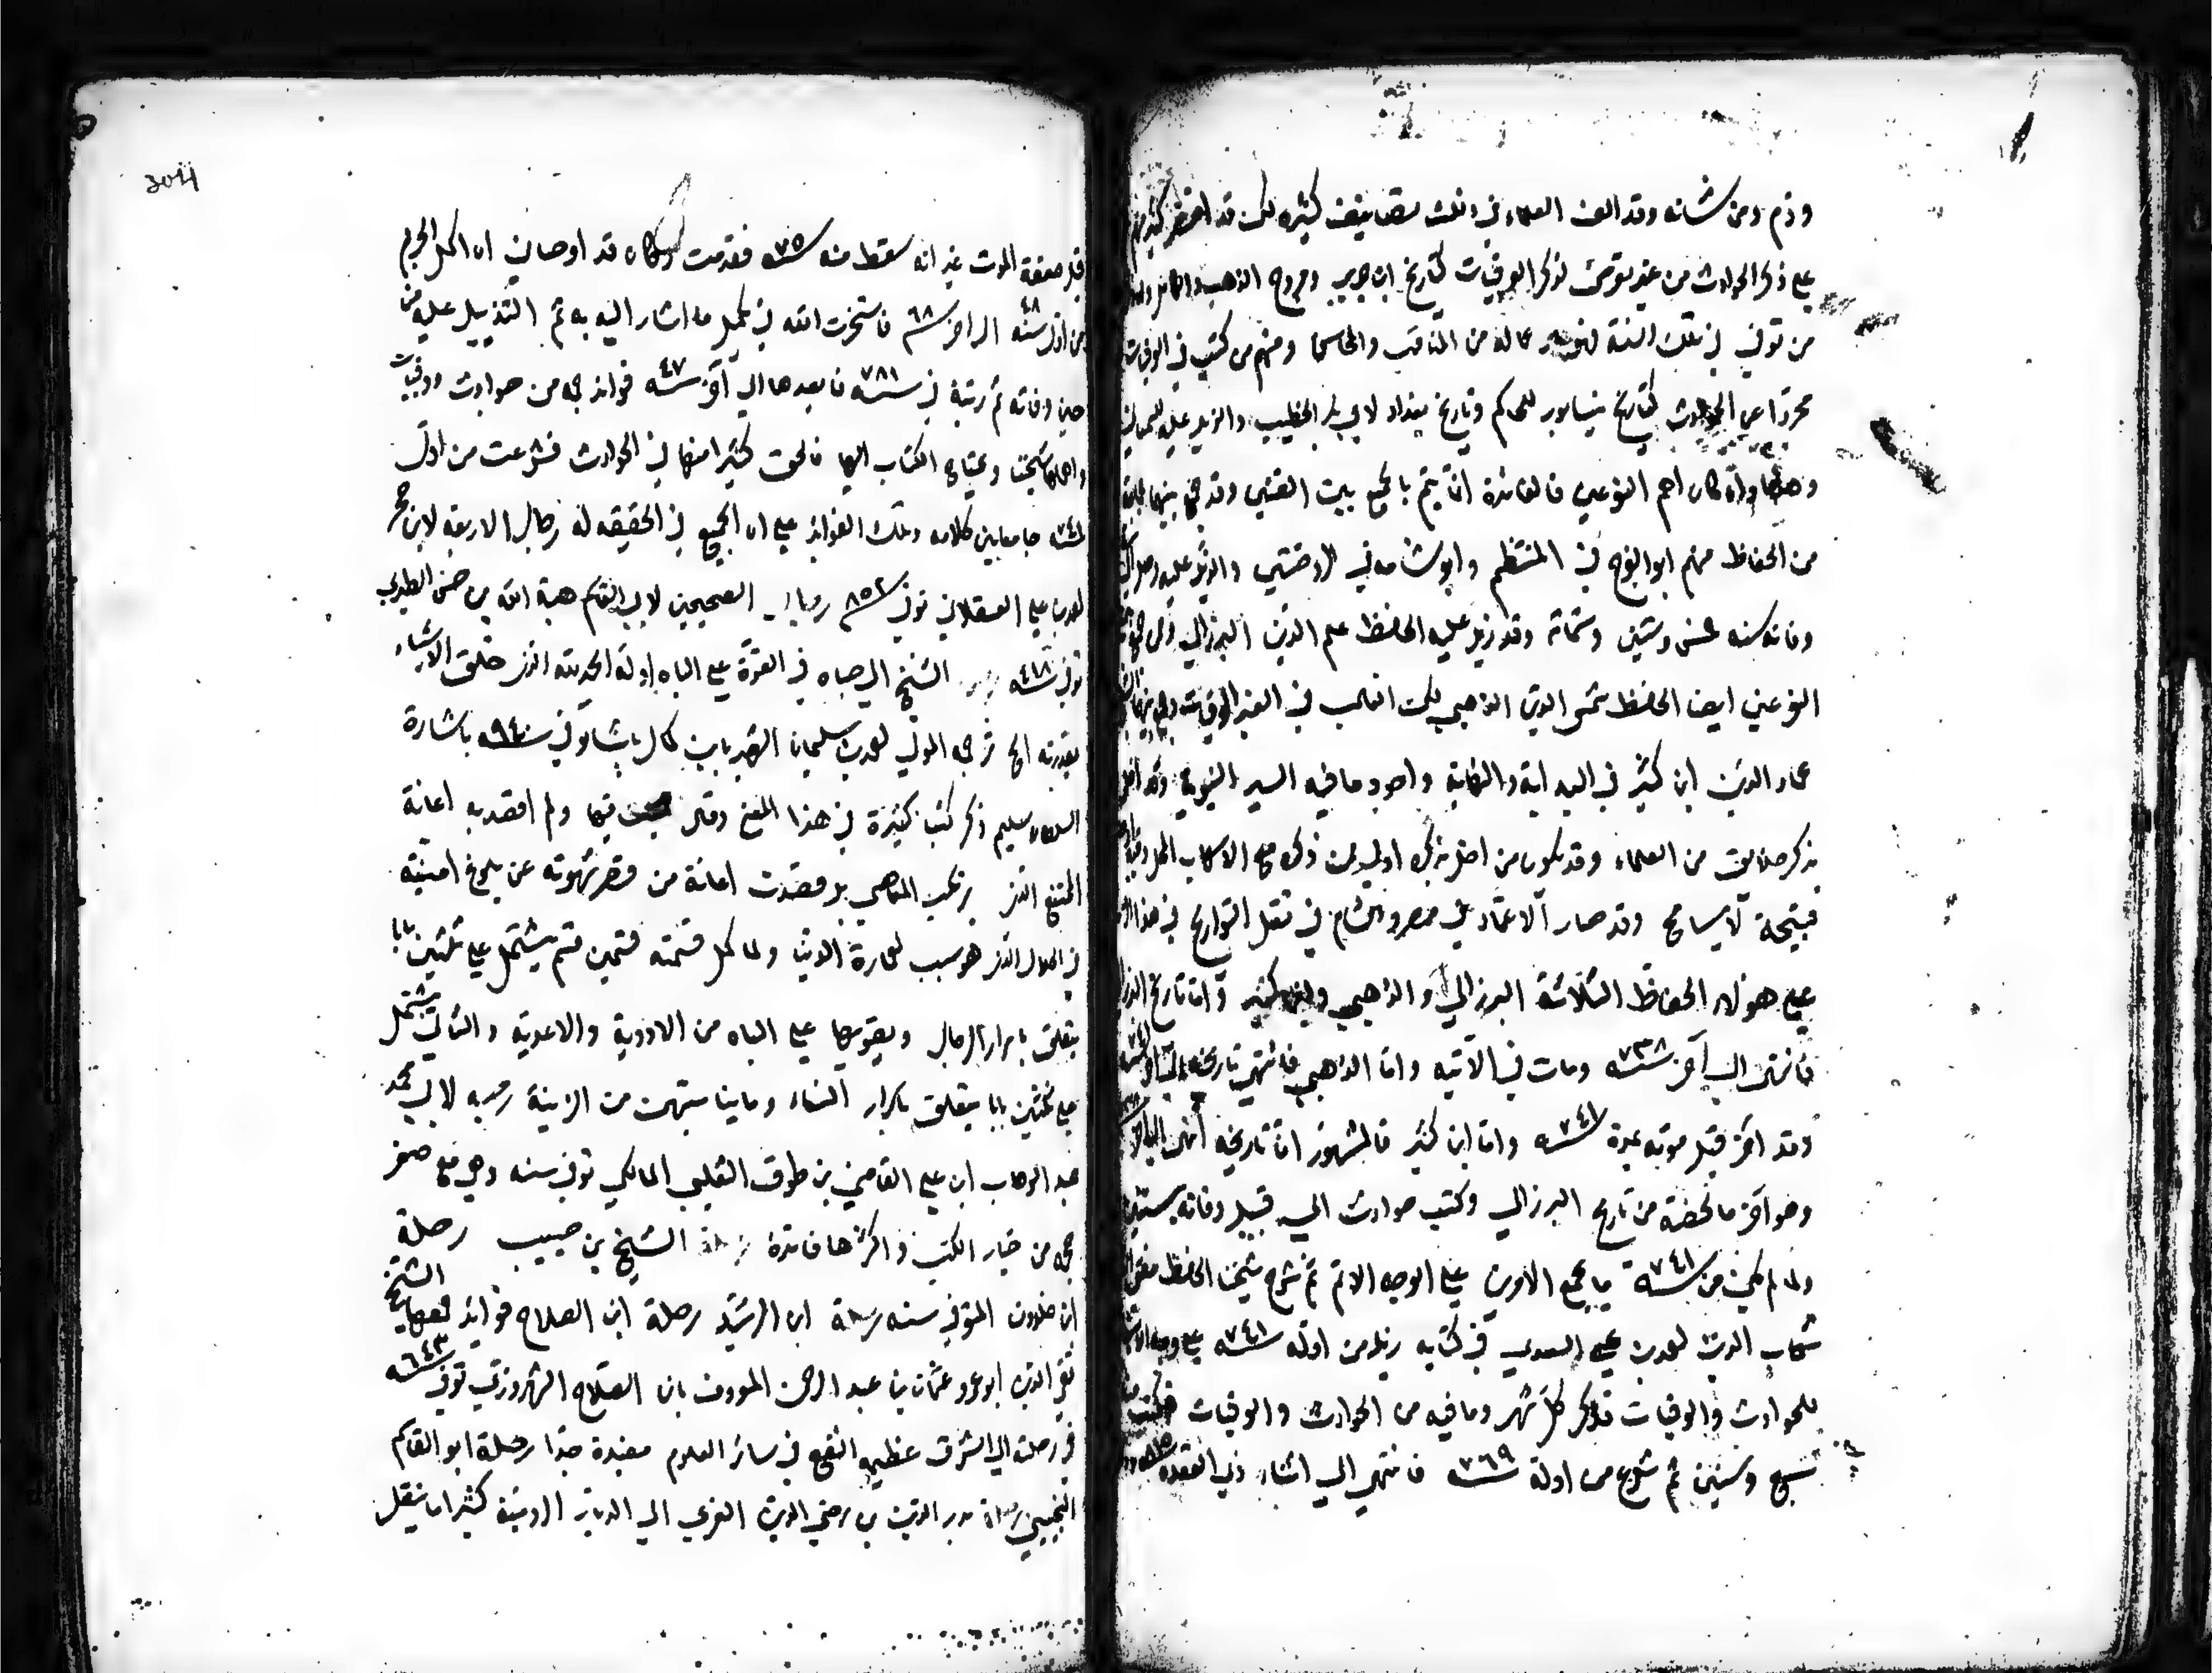 وذم ومن شانه وقد الف العلماء في ذلك تصانيف كثيرة لكن قد اقتصر كثير منهم
على ذكر الحوادث من غير تعرض لذكر الوفيات كتاريخ ابن جرير ومروج الذهب والكامل
من توفي في تلك السنة فهو عمالة من المناقب والمحاسن ومنهم من كتب في الوفيات
مجردا عن الحوادث كتاريخ نيسابور للحاكم وتاريخ بغداد لابي بكر الخطيب والذيل عليه للسمعاني
وهذا وان كان اهم النوعين فالفائدة انما تتم بالجمع بين الفنين وقد جمع بينهما جماعة
من الحفاظ منهم ابو الفرج في المنتظم وابو شامة في الروضتين والذيل عليه
وفاته سنه خمس وستين وستمائة وقد ذيل عليه الحافظ علم الدين البرزالي
النوعين ايضا الحافظ شمس الدين الذهبي لكن الغالب في العبر الوفيات
عماد الدين ابن كثير في البداية والنهاية واجود ما فيه السير النبوية وقد اخل
بذكر خلايق من العلماء وقد يكون من اخل بذكره اولى ممن ذكره مع الاسهاب
قبيحة لا يسامح وقد صار الاعتماد في مصر والشام في نقل التواريخ في هذا
على هؤلاء الحفاظ الثلاثة البرزالي والذهبي وابن كثير واما تاريخ
فانتهى الى آخر سنة ٧٣٨ ومات في الآتيه واما الذهبي فانتهى تاريخه
وقد آخر قبل موته بمدة سنة ٧٤١ واما ابن كثير فالمشهور ان تاريخه انتهى
وهو آخر ما لخصه من تاريخ البرزالي وكتب حوادث الى قبيل وفاته بسنتين
ولما لم يكن من سنة ٧٤١ ما يجمع الامرين على الوجه الاتم ثم شرع شيخنا الحافظ
شهاب الدين احمد بن السعدي في كتابه ذيل من اوله سنة ٧٤١ على وجه
للحوادث والوفيات فذكر كل شهر وما فيه من الحوادث والوفيات فكتب
سبع وستين ثم شرع من اولة سنة ٧٦٩ فانتهى الى اثناء ذي القعده
قبل ضعفة الموت غير انه سقط منه سنة ٧٥ فقدمت وكان قد اوصاني ان اكمل الخرم
من اول سنة ٤٨ الى اخر سنة ٦٨ فاستخرت الله في تكميل ما اشار اليه ثم التذييل عليه من
حين وفاته ثم رتبة في سنة ٧٨١ فما بعدها الى آخر سنة ٤٧ فوائد جمه من حوادث ووفيات
ويحتاج الكتاب اليها فالحق كثيرا منها في الحوادث فشرعت من اول
سنة ٧٤١ جامعا بين كلامه وتلك الفوائد على ان الجميع في الحقيقه له رجال الاربعة لابن حجر
احمد بن علي العسقلاني توفي سنة ٨٥٢ رجال الصحيحين لابي القاسم هبة الله بن حسن الطبري
توفي سنة ٤١٨ رجوع الشيخ الى صباه في القوة على الباه اوله الحمد لله الذي خلق الاشياء
بقدرته الخ ترجمه المولى احمد بن سليمان الشهير بابن كمال باشا توفي سنة ٩٤٠ باشارة
السلطان سليم ذكر كتبا كثيرة في هذا المعنى وقال فيها ولم اقصد به اعانة
المتمتع الذي يرتكب المعاصي بل قصدت اعانة من قصر شهوته عن بلوغ امنيته
في الحلال الذي هو سبب لعمارة الدنيا ولما كمل قسمته قسمين قسم يشتمل على ثلثين بابا
يتعلق باسرار الرجال ويقويها على الباه من الادوية والاغذية والثاني يشتمل
على ثلثين بابا يتعلق باسرار النساء وما يناسبهن من الزينة رحبه لابي محمد
عبد الوهاب ابن علي القاضي بن طوق الثعلبي المالكي توفي سنه وهي مع صغر
حجمه من خيار الكتب واكثرها فائدة رحلة الشيخ بن حبيب رحلة
ابن خلدون المتوفى سنه رحلة ابن الرشيد رحلة ابن الصلاح فوائد جمعها الشيخ
تقي الدين ابو عمرو عثمان بن عبد الرحمن المعروف بابن الصلاح الشهرزوري توفي سنة ٦٤٣
في رحلته الى الشرق عظيمة النفع في سائر العلوم مفيدة جدا رحلة ابو القاسم
التجيبي رحلة بدر الدين بن رضي الدين الغزي الى الديار الرومية كثيرا ما ينقل